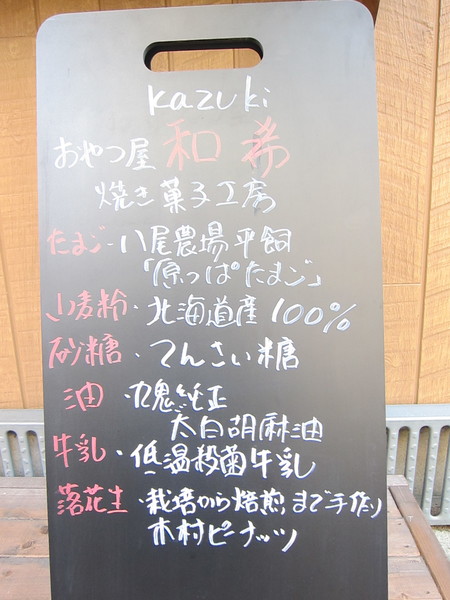 kazuki
おやつ屋 和希
焼き菓子工房
たまご・八尾農場平飼
「原っぱたまご」
小麦粉・北海道産100%
砂糖・てんさい糖
油・九鬼純正
太白胡麻油
牛乳・低温殺菌牛乳
落花生・栽培から焙煎まで手作り
木村ピーナッツ